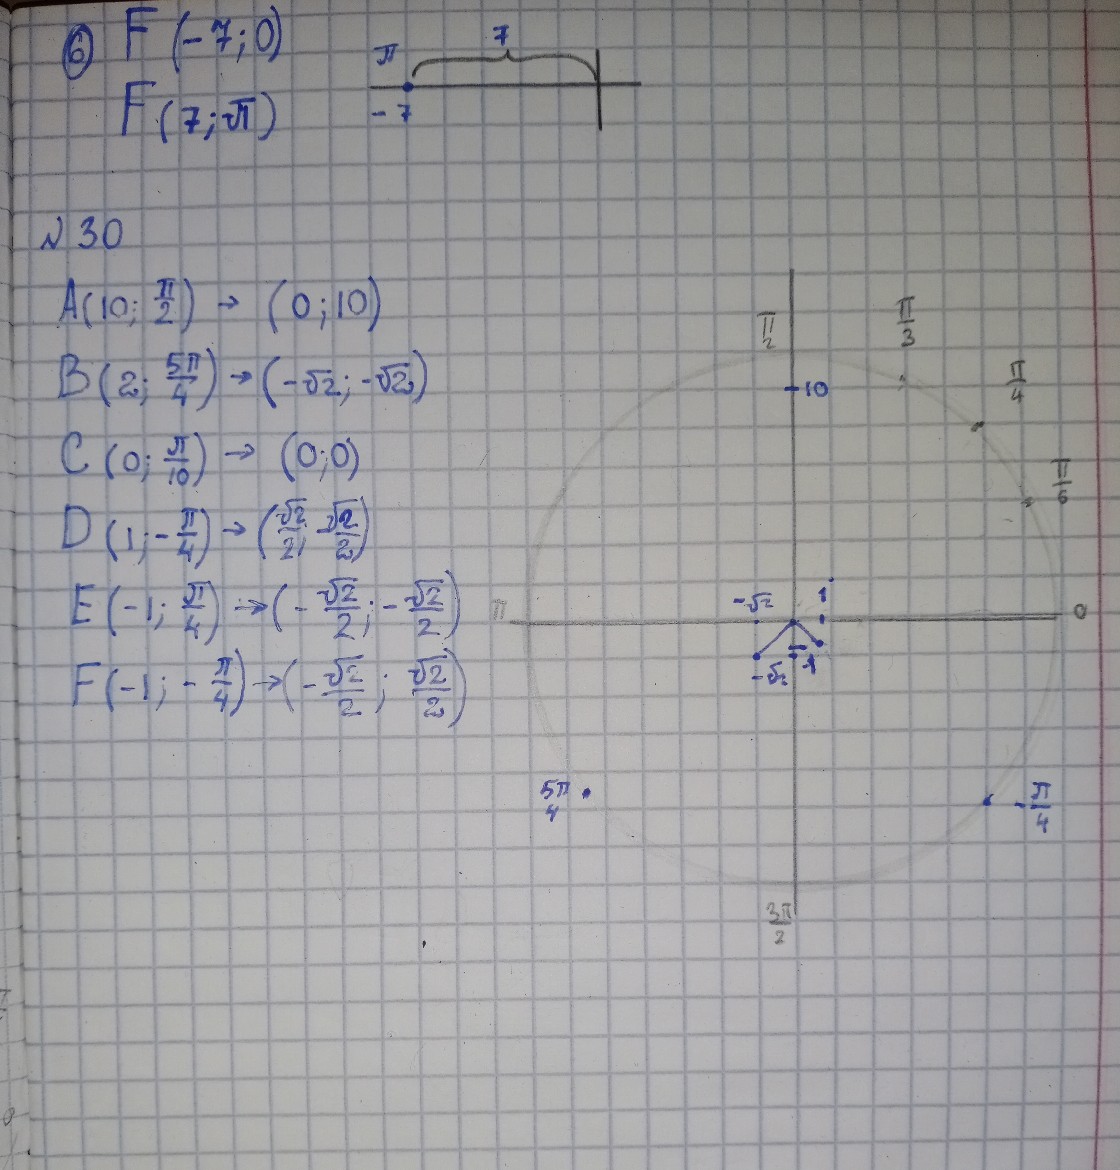 6 F (-7; 0)
F (7; π)
π
7
-7
№ 30
A(10; π/2) → (0; 10)
B(2; 5π/4) → (-√2; -√2)
C (0; π/10) → (0; 0)
D (1; -π/4) → (√2/2; -√2/2)
E (-1; π/4) → (-√2/2; -√2/2)
F(-1; -π/4) → (-√2/2; √2/2)
π/2
π/3
π/4
10
π/6
π
-√2
1
0
-√2
-1
5π/4
-π/4
3π/2